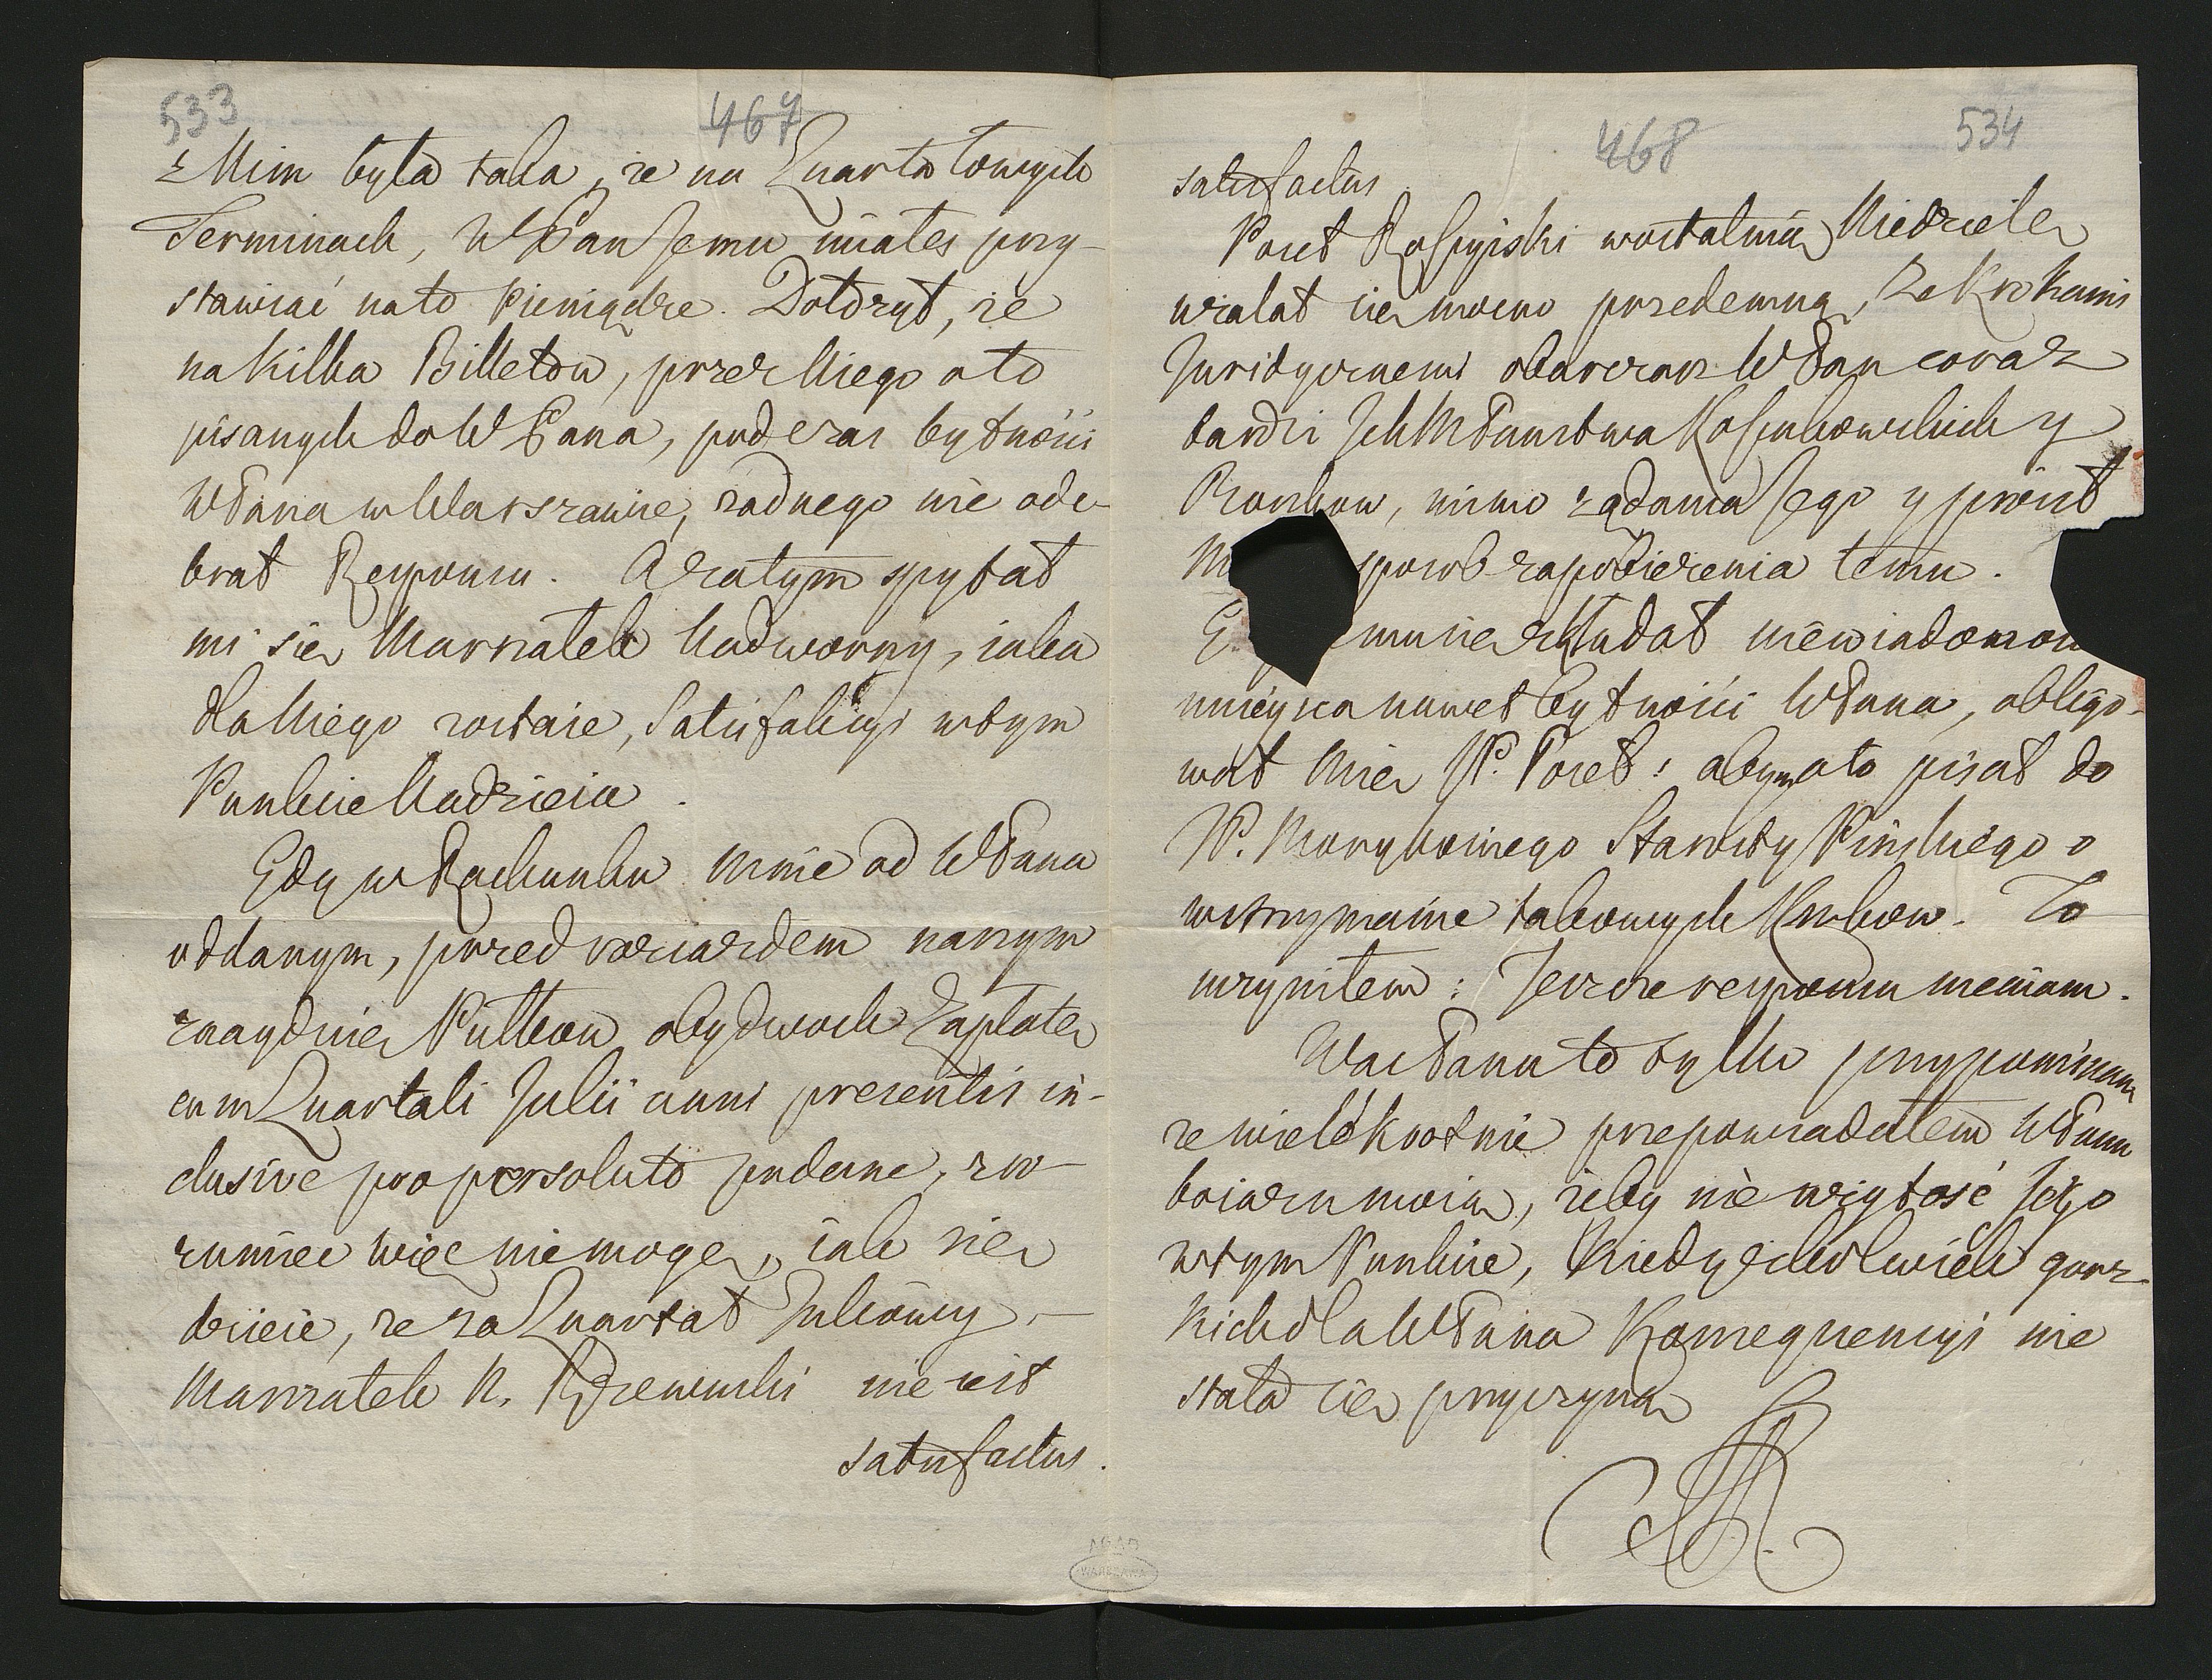 533
467
z Nim była taka, że na Quartałowych
Terminach, WPan Jemu miałeś przy-
stawiać na to pieniądze. Dołożył, że
na kilka Billetów, przez Niego o to
pisanych do WPana, podczas bytności
WPana w Warszawie, żadnego nie ode-
brał Responsu. A zatym spytał
mi się Marszałek Nadworny, iaka
dla Niego zostaie, Satisfakcyi w tym
Punkcie Nadzieia.
Gdy w Rachunku mnie od WPana
oddanym, przed rozjazdem naszym
znayduię Pułkow obydwoch Zapłatę
cum Quartali Julii anni presentis in-
clusive pro persoluto podane, zro-
zumiec więc nie mogę, iak się
dzieie, że za Quartał Juliowy
Marszałek N. Rzewuski nie iest
satisfactus.
468
534
satisfactus
Poseł Rossyiski w ostatnią Niedzielę
użalał się mocno przedemną, że Krokami
Juridycznemi obarczasz WPan coraz
bardzi JchMPaństwa Kossakowskich y
mimo żądania Jego y prośb
M sposob zapobieżenia temu.
G mu się składał niewiadomoś
mieysca nawet bytności WPana, obligo-
wał mię JP. Poseł: abym o to pisał do
JP. Morykoniego Starosty Pińskiego o
wstrzymanie takowych Krokow. To
uczyniłem: Jeszcze responsu nie mam.
WaćPanu to tylko przypominam
że wielokrotnie przepowiadałem WPanu
boiaźń moią, żeby nie użytość Jego
w tym Punkcie, kiedyżkolwiek gorz-
kich dla WPana Konsequencyi nie
stała się przyczyną
SAR
AGAD
WARSZAWA